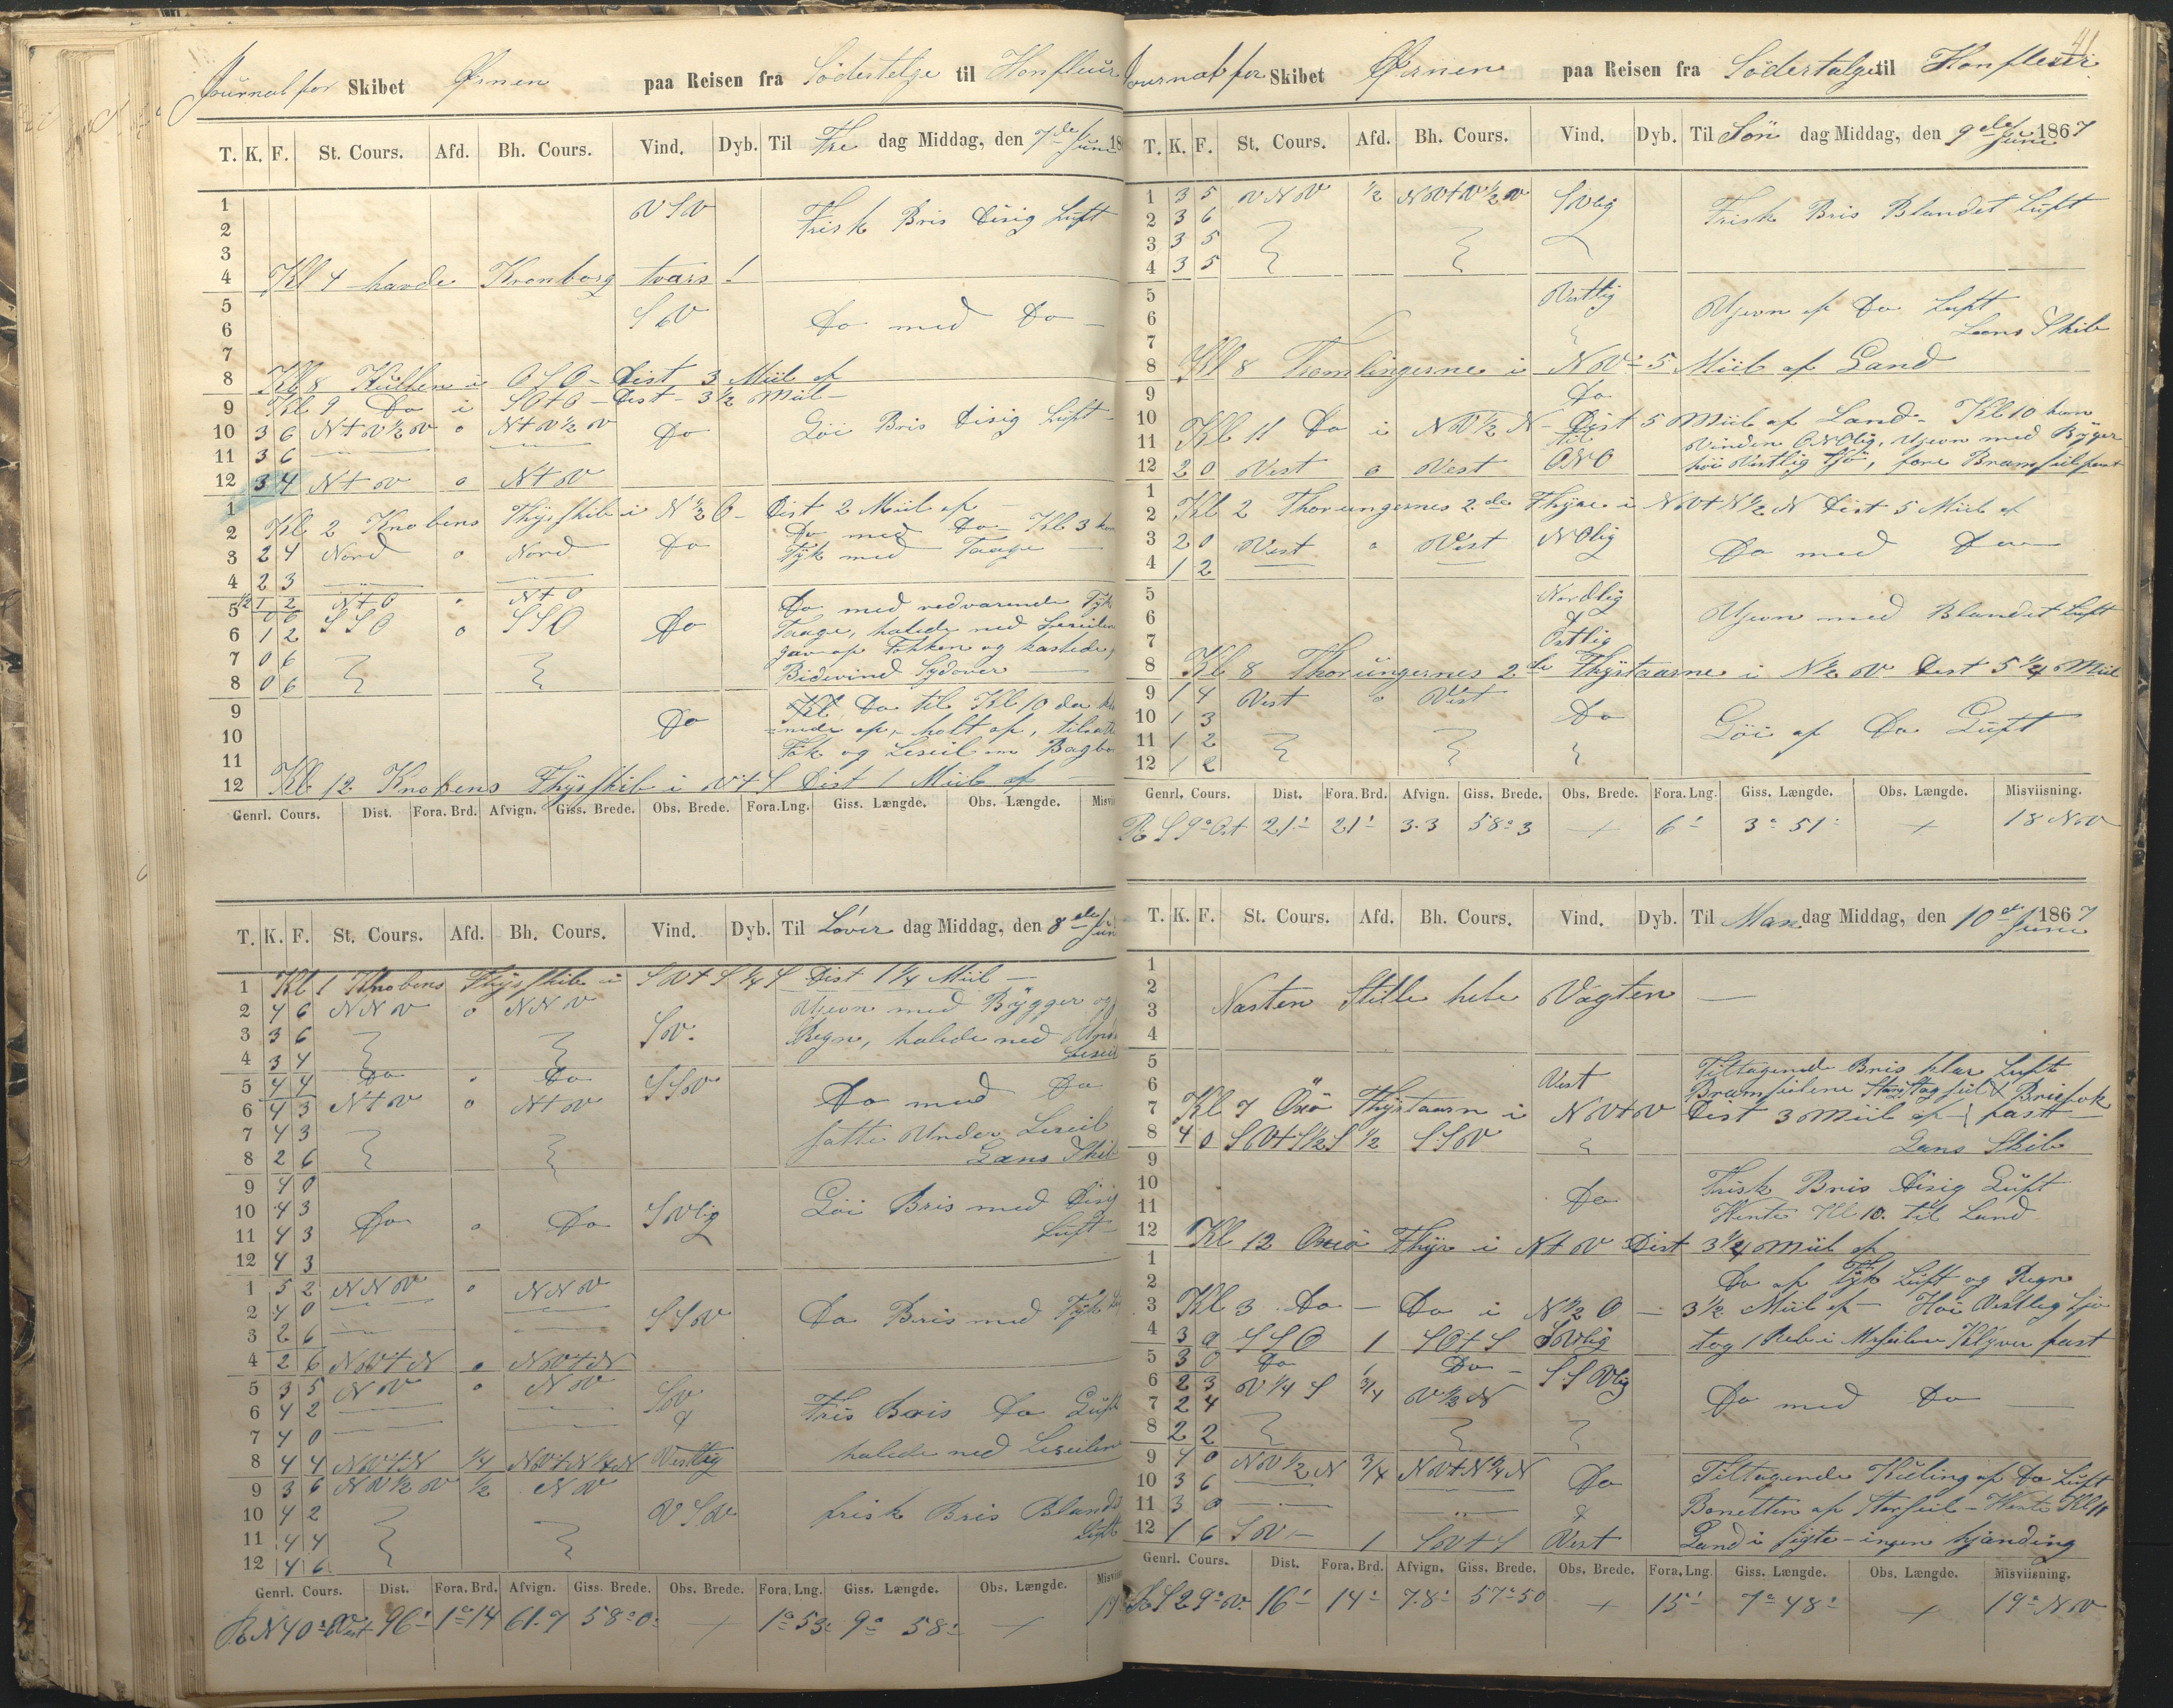 Journal for Skibet Ørnen paa Reisen fra Södertelge til Honfleur
T. K. F. St. Cours. Afd. Bh. Cours. Vind. Dyb. Til Fre dag Middag, den 7de Juni 18
1 V S V
2 Frisk Bris Disig Luft
3
4 Kl 4 havde Kronborg tvers !
5 S t V
6 Do med Do
7
8 Kl 8 Kullen i O S O - Dist 3 Miil af
9 Kl 9 Do i SO t O - Dist - 3 1/2 Miil -
10 3 6 N t V 1/2 V o N t V 1/2 V Do Göi Bris Disig Luft
11 3 6
12 3 4 N t V o N t V
1
2 Kl 2 Knobens Fhyrskib i N 1/2 O - Dist 2 Miil af
Do med Do - Kl 3 kom
3 2 4 Nord o Nord Do Tyk med Taage
4 2 3
5 1/2 1 2 N t O o N t O Do med vedvarende Tyk
0 6 S S O S S O
6 1 2 o Do Taage, halede ned Leseilene
7 0 6 gav op Fokken og kastede
8 0 6 Bidevind Sydover
9 Kl Do til Kl 10 da
10 Do
11 Fok og Leseil om Bagbo
12 Kl 12 Knobens Fhyrskib i V t S Dist 1 Miil af
Genrl. Cours. Dist. Fora. Brd. Afvign. Giss. Brede. Obs. Brede. Fora. Lng. Giss. Længde. Obs. Længde.
T. K. F. St. Cours. Afd. Bh. Cours. Vind. Dyb. Til Löver dag Middag, den 8de Juni
1 Kl 1 Knobens Fhyrskib i S V t S 1/4 S Dist 1 1/4 Miil
2 4 6 N N V o N N V Ujevn med Bygger og
3 3 6 S V. Regn, halede ned Under
4 3 4 Leseil
5 4 4 Do o Do S S V Do med Do
6 4 3 N t V o N t V
7 4 3 satte Under Leseil
8 2 6 Læns Skib
9 4 0
10 4 3 Do o Do S V lig Göi Bris med Disig
11 4 3 Luft
12 4 3
1 5 2 N N V o N N V
2 4 0 S S V Do Bris med Tyk
3 2 6
4 2 6 N V t N o N V t N
5 3 5 N V o N V S V
6 4 2 Fris Bris Do Luft
7 4 0 halede ned Leseilene
8 4 4 N V t N 1/4 N V t N 1/4 N Vestlig
9 3 6 N V 1/2 V 1/2 N V
10 4 2 V S V frisk Bris Blandet
11 4 4 Luft
12 4 6
Genrl. Cours. Dist. Fora. Brd. Afvign. Giss. Brede. Obs. Brede. Fora. Lng. Giss. Længde. Obs. Længde.
R N 40° Vest 96' 1° 14 61.7 58° 0' + 1° 53' 9° 58' +
Journal for Skibet Ørnen paa Reisen fra Södertalge til Honfleur
T. K. F. St. Cours. Afd. Bh. Cours. Vind. Dyb. Til Sön dag Middag, den 9de Juni 1867
1 3 5 V N V 1/2 N V t V 1/2 V S V lig
2 3 6 Frisk Bris Blandet Luft
3 3 5
4 3 5
5 Vestlig
6 Ujevn af Do Luft
7 Læns Skib
8 Kl 8 Homlingerne i N V - 5 Miil af Land
9 Do
10
11 Kl 11 Do i N V 1/2 N - Dist 5 Miil af Land - Kl 10 kom
til Vinden O N O lig, Ujevn med Byger
12 2 0 Vest o Vest O N O höi Vestlig Sjö,
1
2 Kl 2 Thorungernes 2de Fhyre i N V t N 1/2 N Dist 5 Miil af
3 2 0 Vest o Vest N O lig Do med Do
4 1 2
5 Nordlig
6 Ujevn med Blandet Luft
7 Östlig
8 Kl 8 Thorungernes 2de Fhyrtaarne i N 1/2 V Dist 5 1/4 Miil
9 1 4 Vest o Vest
10 1 3 Do Göi af Do Luft
11 1 2
12 1 2
Genrl. Cours. Dist. Fora. Brd. Afvign. Giss. Brede. Obs. Brede. Fora. Lng. Giss. Længde. Obs. Længde. Misviisning.
R S 9° Ost 21' 21' 3.3 58° 3 + 6' 3° 51' + 18 N V
T. K. F. St. Cours. Afd. Bh. Cours. Vind. Dyb. Til Man dag Middag, den 10de Juni 1867
1
2
3 Nasten Stille hele Vagten
4
5 Tiltagende Bris klar Luft
6 Vest Bramseilene
7 Kl 7 Oxö Fhyrtaarn i N V t V Dist 3 Miil af fast
8 4 0 S V t S 1/2 S 1/2 S S V Læns Skib
9
10 Frisk Bris Disig Luft
11 Do Vente Kl 10. til Land
12 Kl 12 Oxö Fhyr i N t V Dist 3 1/4 Miil af
1
2 Do af Tyk Luft og Regn
3 Kl 3 Do - Do i N 1/2 O - 3 1/2 Miil af - Höi Vestlig Sjö
4 3 0 S S O 1 S O t S S V lig tog 1 Reb i Mersseilene Klyver fast
5 3 0 Do Do
6 2 3 V 1/4 S 3/4 V 1/2 N S S V lig
7 2 4 Do med Do
8 2 2
9 4 0 N V 1/2 N 3/4 N V t N 1/4 N
10 3 6 Do Tiltagende Kuling af Do Luft
11 3 0 Bonetten af Storseil - Vente Kl 11
12 1 6 S V 1 S V t S Vest Land i sigte - ingen kjending
Genrl. Cours. Dist. Fora. Brd. Afvign. Giss. Brede. Obs. Brede. Fora. Lng. Giss. Længde. Obs. Længde. Misviisning.
R S 29° V. 16' 14' 7.8' 57° 50 + 15' 7° 48' + 19° N V